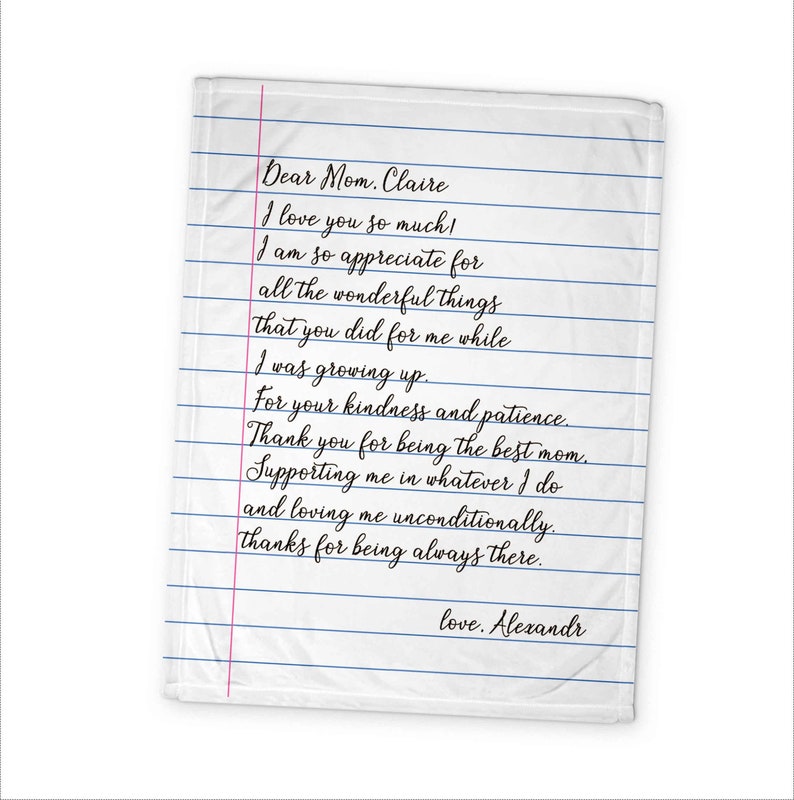 Dear Mom. Claire
I love you so much!
I am so appreciate for
all the wonderful things
that you did for me while
I was growing up.
For your kindness and patience.
Thank you for being the best mom.
Supporting me in whatever I do
and loving me unconditionally.
thanks for being always there.
love. Alexandr